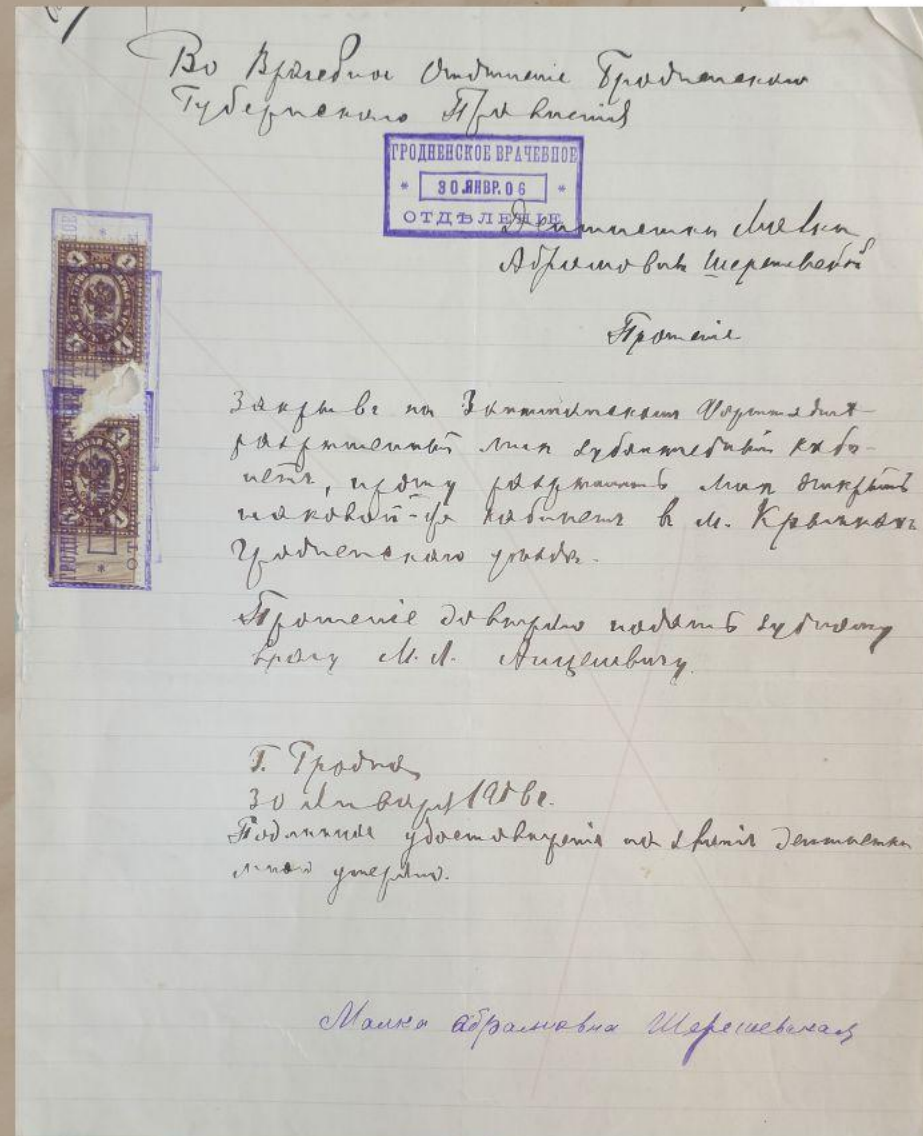 Во Врачебное Отделеніе Гродненскаго
Губернскаго Правленія
ГРОДНЕНСКОЕ ВРАЧЕБНОЕ
* 30.ЯНВ.Р.06 *
ОТДѢЛЕНІЕ
Дентистки Малки
Абрамовны Шерешевской
Прошеніе
Закрывъ на
разрѣшенный мнѣ зуболечебный каби-
нетъ, прошу разрѣшить мнѣ открыть
таковой-же кабинетъ в м. Крынкахъ
Гродненскаго уѣзда.
Прошеніе довѣряю подать зубному
врачу М. Л.
Г. Гродна
30 Января 1906 г.
Подлинное удостовѣреніе на званіе дентистки
мною утеряно.
Малка Абрамовна Шерешевская